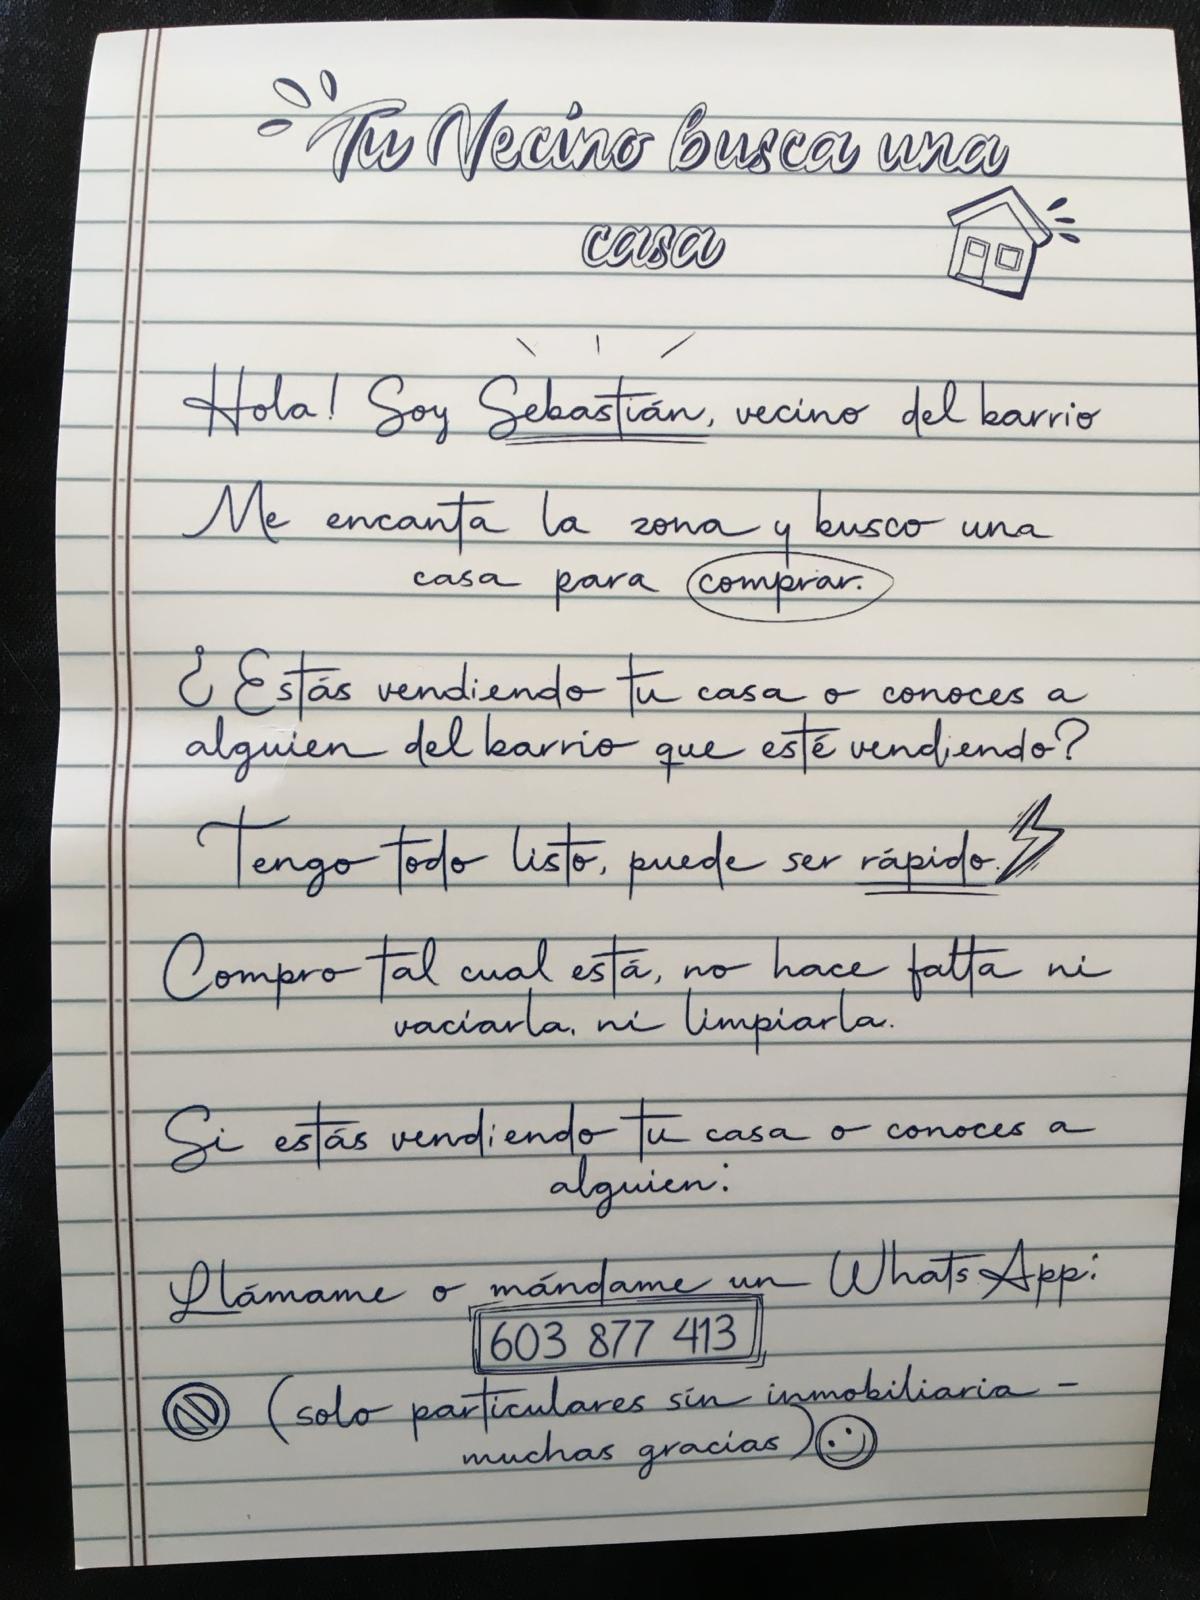 Tu Vecino busca una
casa
Hola! Soy Sebastián, vecino del barrio
Me encanta la zona y busco una
casa para comprar.
¿Estás vendiendo tu casa o conoces a
alguien del barrio que esté vendiendo?
Tengo todo listo, puede ser rápido.
Compro tal cual está, no hace falta ni
vaciarla, ni limpiarla.
Si estás vendiendo tu casa o conoces a
alguien:
Llámame o mándame un WhatsApp:
603 877 413
(solo particulares sin inmobiliaria -
muchas gracias)